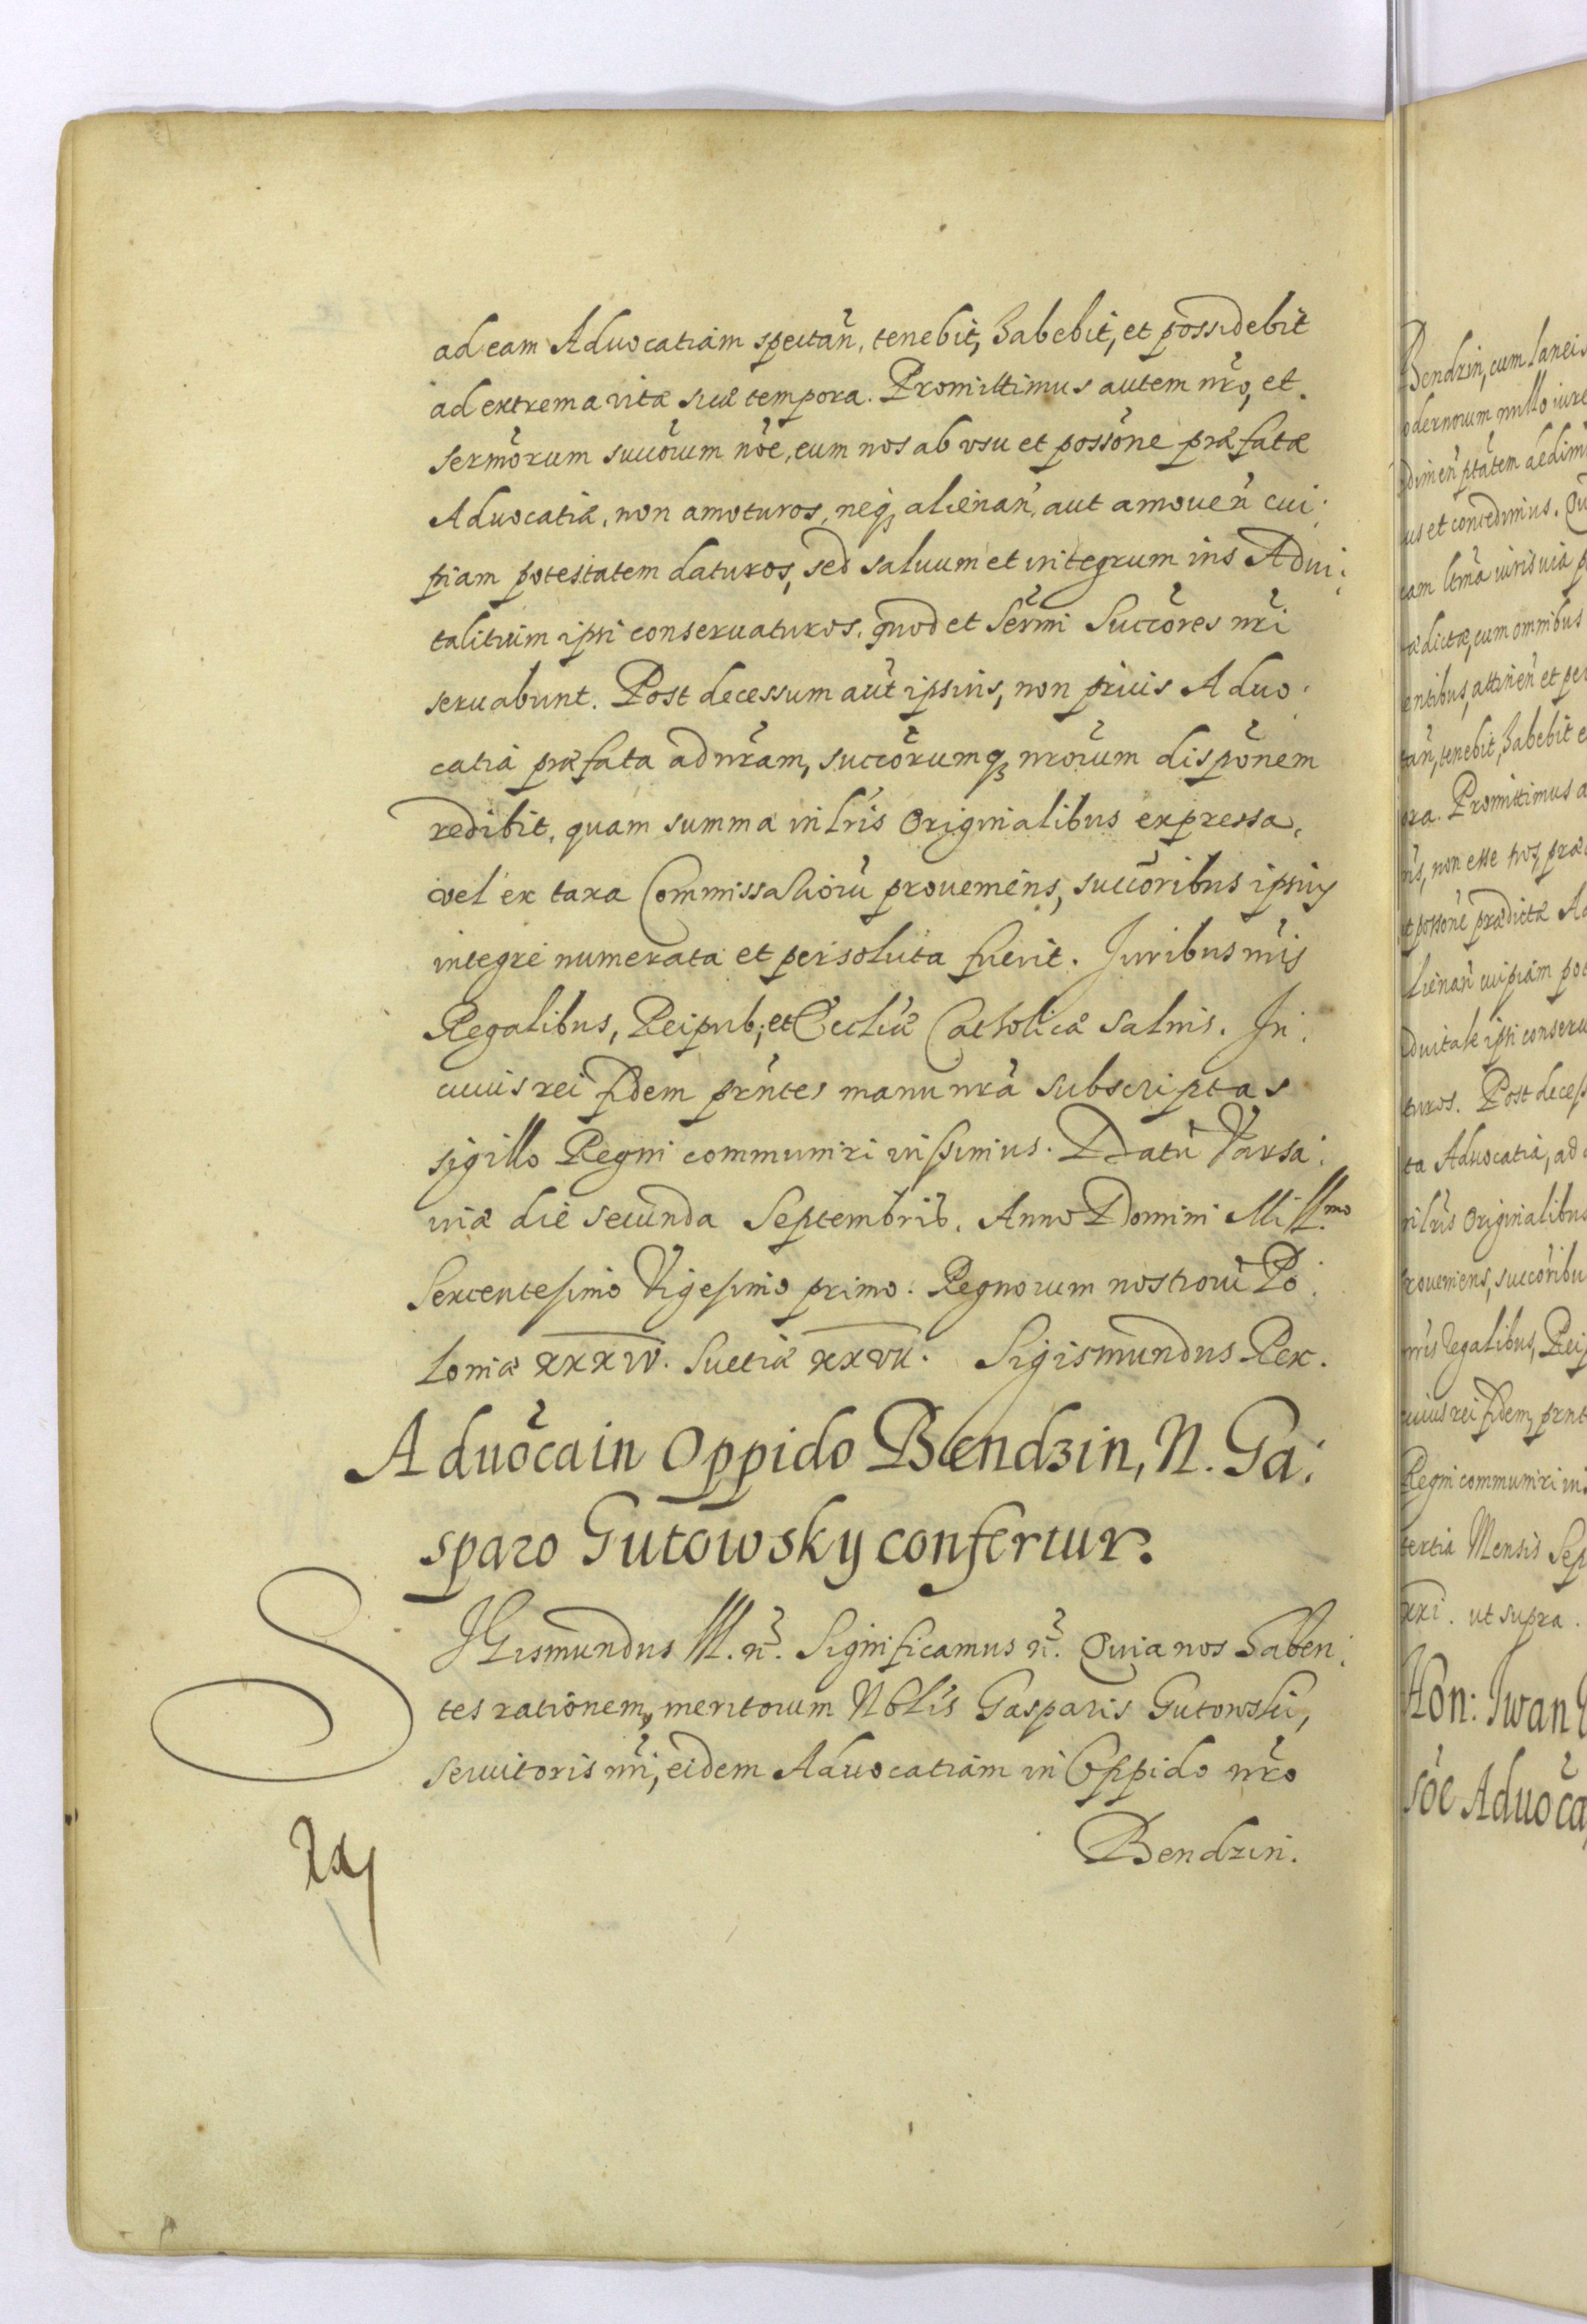 ad eam Aduocatiam spectan̄, tenebit, habebit, et possidebit
ad extrema vitæ suæ tempora. Promittimus autem nr̄o, et
serm̄orum succōrum nōe, eum nos ab vsu et possōne præfatæ
Aduocatiæ, non amoturos, neq; alienan̄, aut amouen̄ cui:
piam potestatem daturos, sed saluum et integrum ius Adui:
talitium ipsi conseruaturos, quod et Serm̄i Succōres nr̄i
seruabunt. Post decessum aūt ipsius, non prius Aduo:
catia præfata ad nr̄am, succōrumq; nr̄orum dispōnem
redibit, quam summa in lr̄is Originalibus expressa,
vel ex taxa Commissariorū proueniens, succōribus ipsius
integre numerata et persoluta fuerit. Iuribus nr̄is
Regalibus, Reipub; et Eccliæ Catholicæ saluis. In
cuius rei fidem prn̄tes manu nr̄a subscriptas
sigillo Regni communiri iussimus. Datū Varsa:
uiæ die secunda Septembris. Anno Domini Mill.mo
Sexcentesimo Vigesimo primo. Regnorum nostrorū Po:
loniæ xxxiv. Suetiæ xxvii. Sigismundus Rex.
Aduōca in Oppido Bendzin, N. Ga:
sparo Gutowsky confertur.
SIGismundus III. n̄. Significamus n̄. Quia nos haben:
tes rationem, meritorum Nōblis Gasparis Gutowski,
seruitoris nr̄i, eidem Aduocatiam in Oppido nr̄o
Bendzin.
Bendzin, cum laneis
odernorum nullo iure
us et concedimus.
ædictæ, cum omnibus
entibus, attinen̄ et per
tan̄, tenebit, habebit e
ora. Promittimus a
ris, non esse nos, præ
et possōne prædictæ Ad
lienan̄ cuipiam pot
duitale ipsi conseru
turos. Post decess
ta Aduocatia, ad
n lr̄is Originalibus
roueniens, succōribu
nr̄is Regalibus, Reip
cuius rei fidem, prn̄t
Regni communiri iu
tertia Mensis Sep
xxi. ut supra.
Hon: Iwan
sōe Aduōca